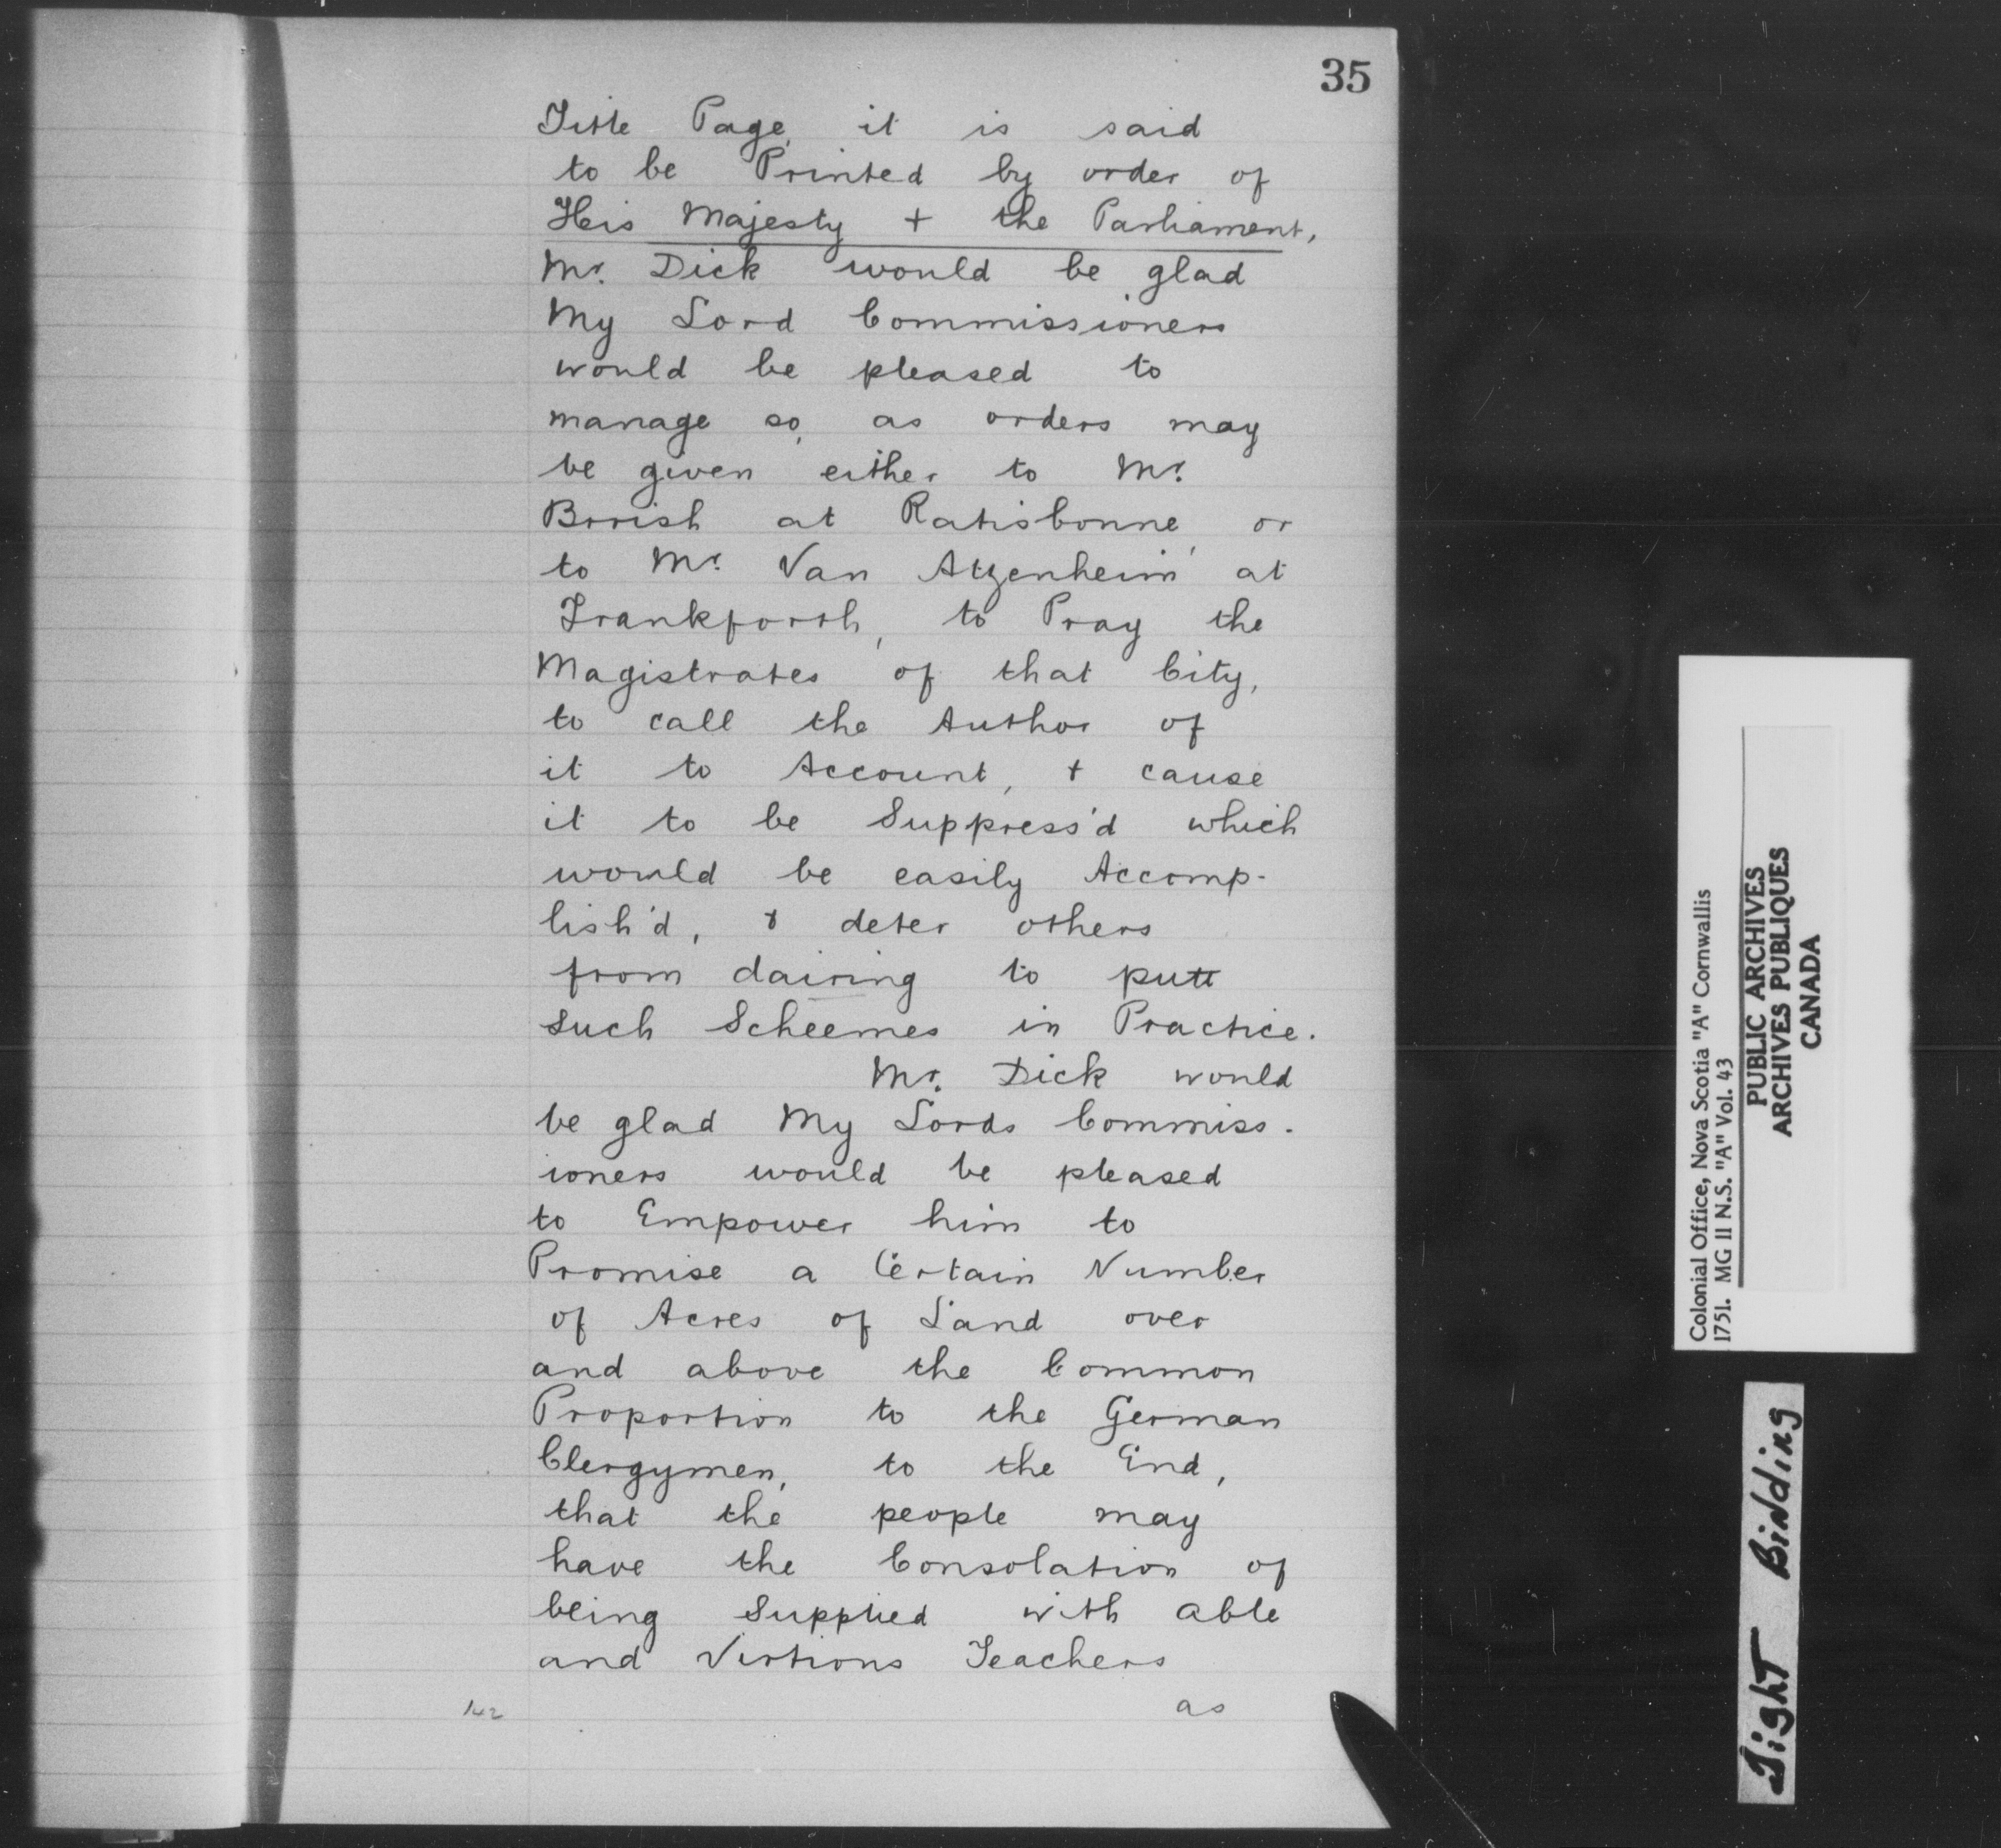 35
Title Page, it is said
to be Printed by order of
His Majesty + the Parliament,
Mr. Dick would be glad
My Lord Commissioners
would be pleased to
manage so, as orders may
be given either to Mr.
Brrish at Ratisbonne, or
to Mr. Van Atzenheim at
Frankforth, to Pray the
Magistrates of that City,
to call the Author of
it to Account, + cause
it to be Suppress'd which
would be easily Accomp-
lish'd, & deter others
from dairing to putt
such Scheemes in Practice.
Mr. Dick would
be glad My Lords Commiss-
ioners would be pleased
to Empower him to
Promise a Certain Number
of Acres of Land over
and above the Common
Proportion to the German
Clergymen, to the End,
that the people may
have the Consolation of
being Supplied with able
and Virtious Teachers
as
142
Colonial Office, Nova Scotia "A" Cornwallis
1751. MG 11 N.S. "A" Vol. 43
PUBLIC ARCHIVES
ARCHIVES PUBLIQUES
CANADA
Tight Binding